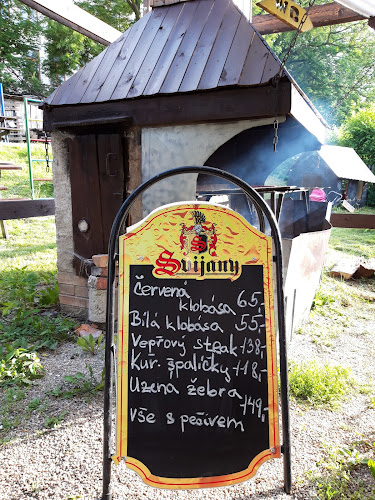 Svijany
Červená
klobása 65,-
Bílá klobása 55,-
Vepřový steak 138,-
Kuř. špalíčky 118,-
Uzená žebra
149,-
vše s pečivem